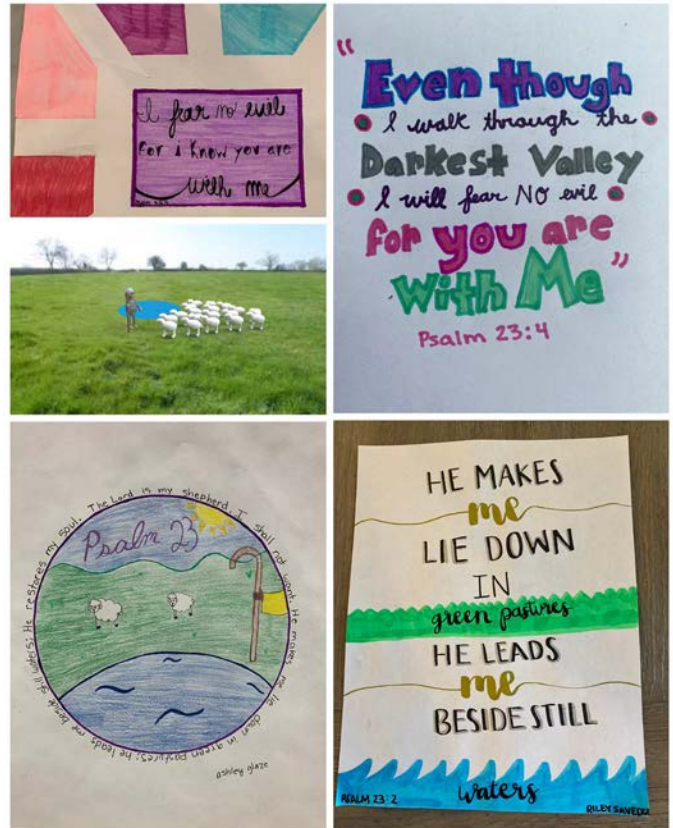 I fear no evil
For i know you are
with me
"Even though
I walk through the
Darkest Valley
I will fear NO evil
for you are
With Me"
Psalm 23:4
The Lord is my shepherd, I shall not want. He makes me lie down in green pastures; he leads me beside still waters; He restores my soul.
Psalm 23
ashley glaze
HE MAKES
me
LIE DOWN
IN
green pastures
HE LEADS
me
BESIDE STILL
waters
PSALM 23:2
RILEY